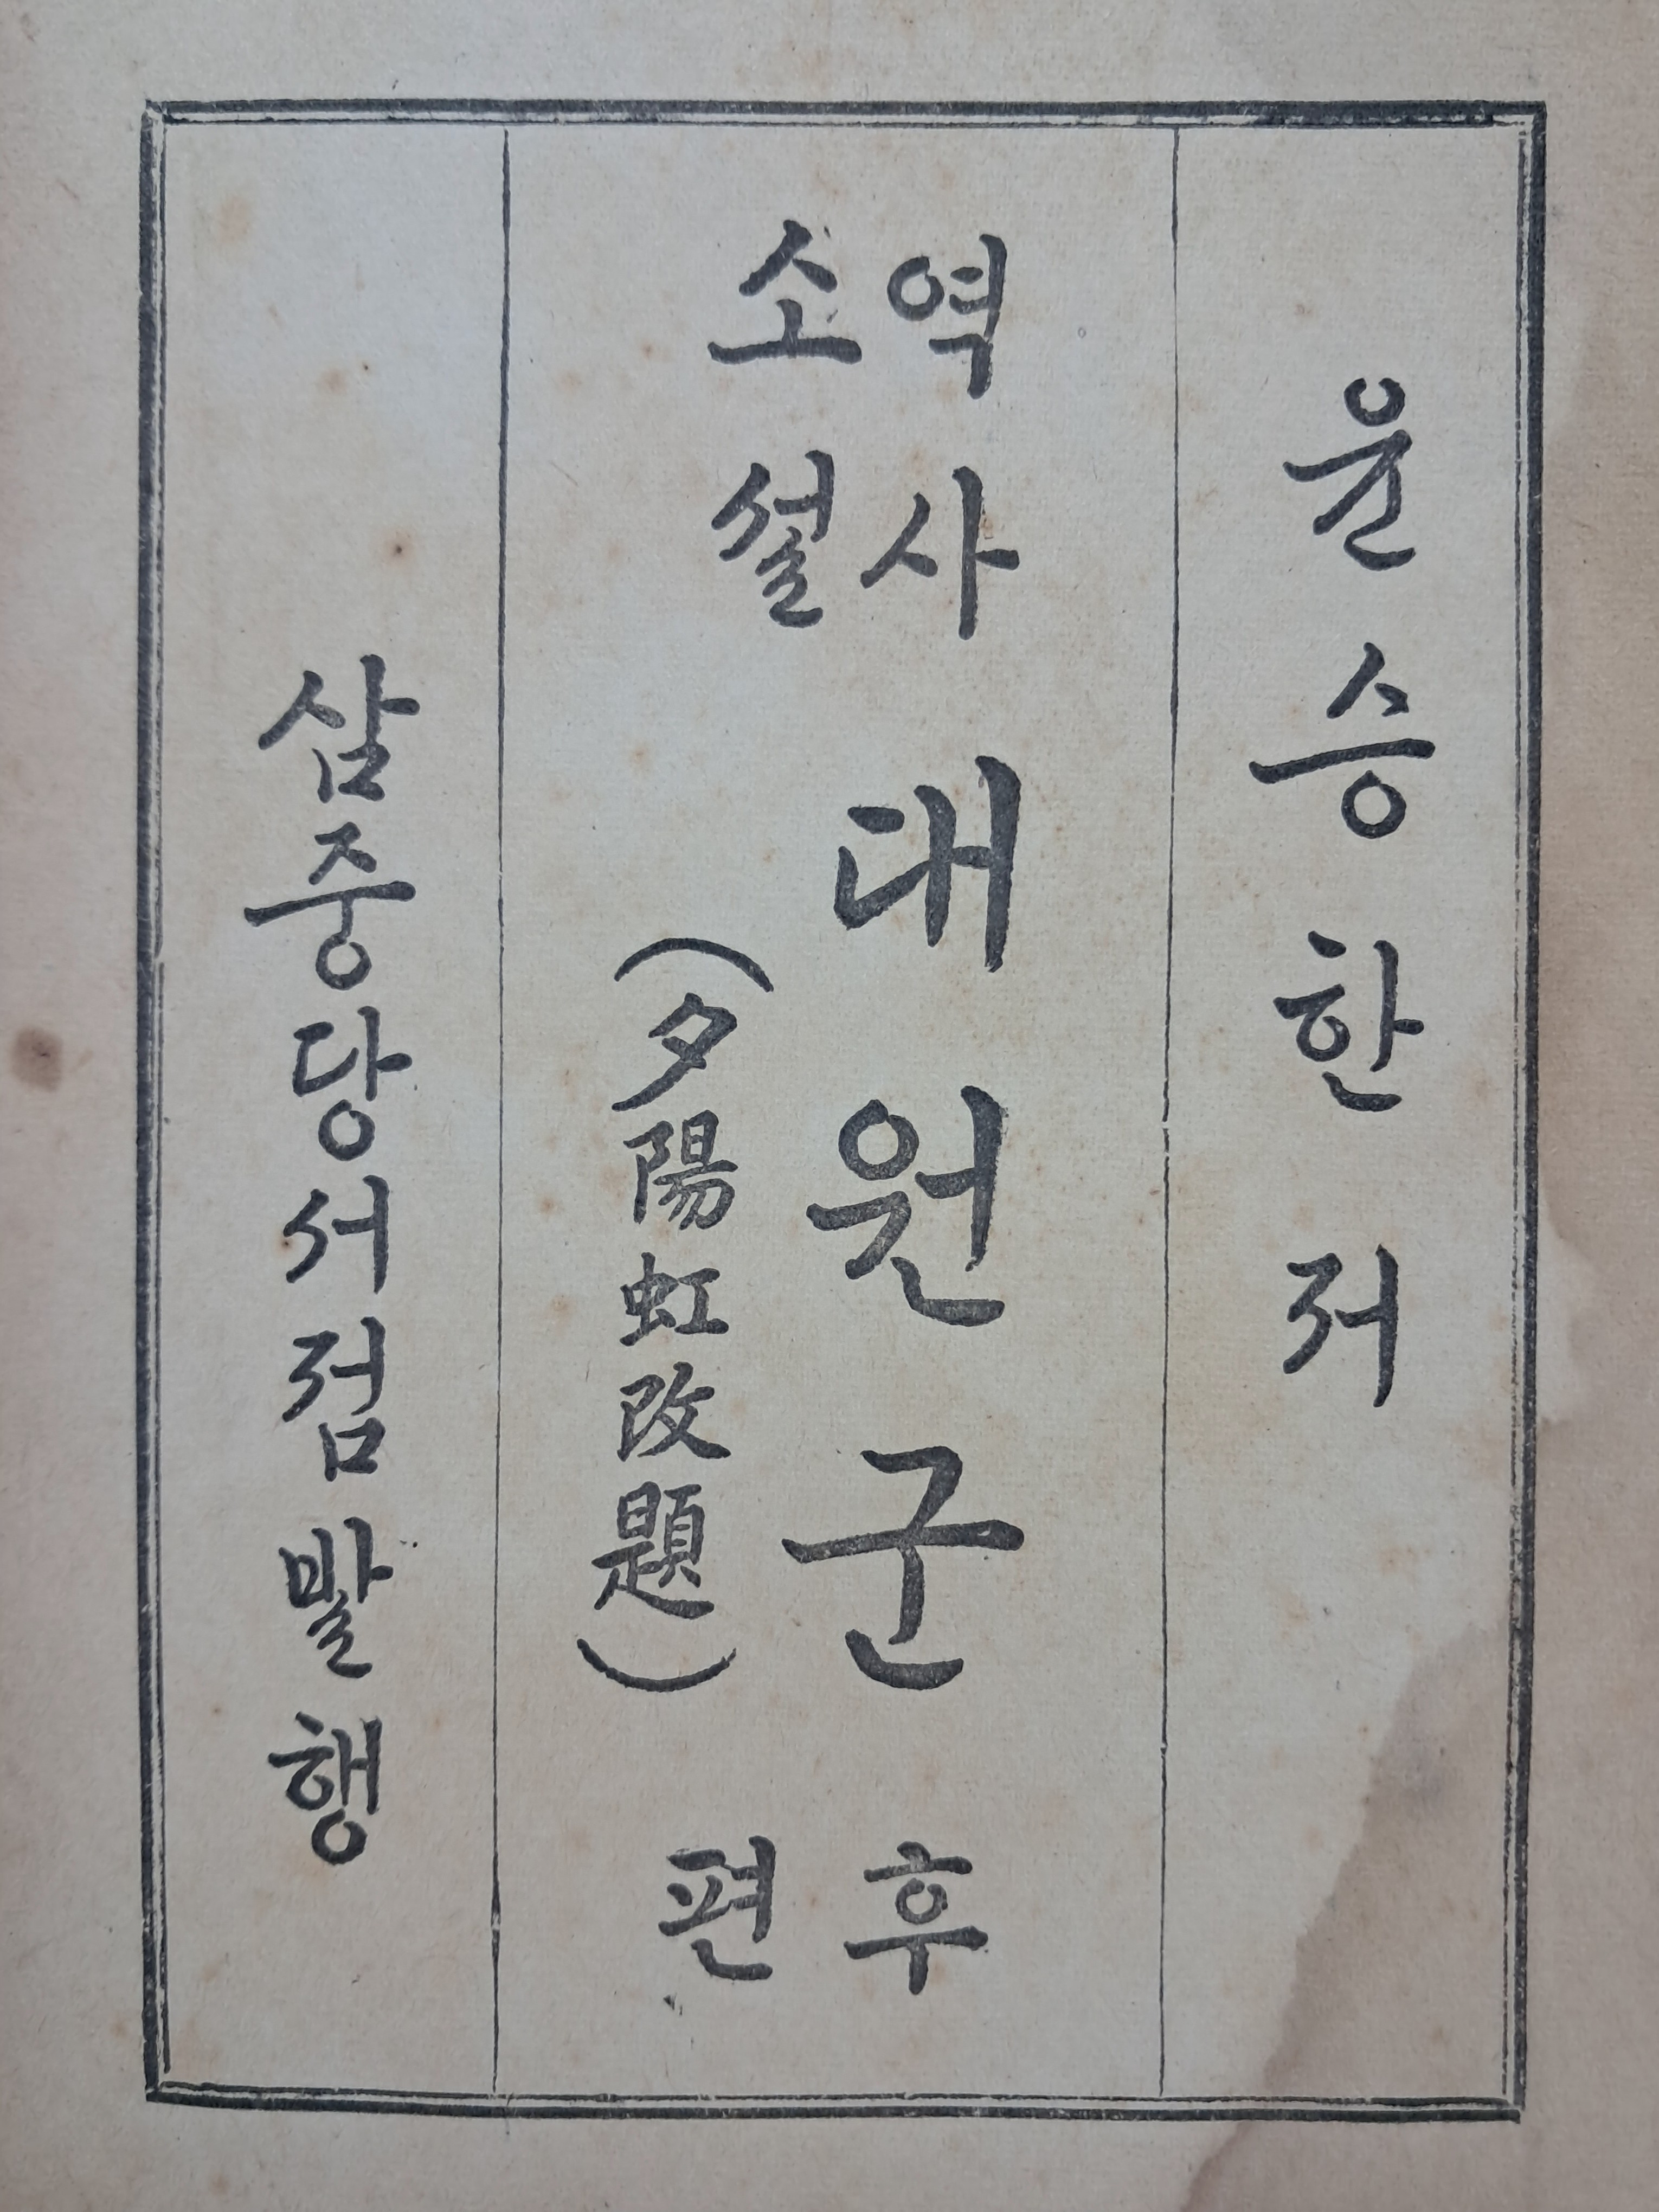 윤승한저
역사
소설
대원군
(夕陽虹改題)
후
편
삼중당서점발행